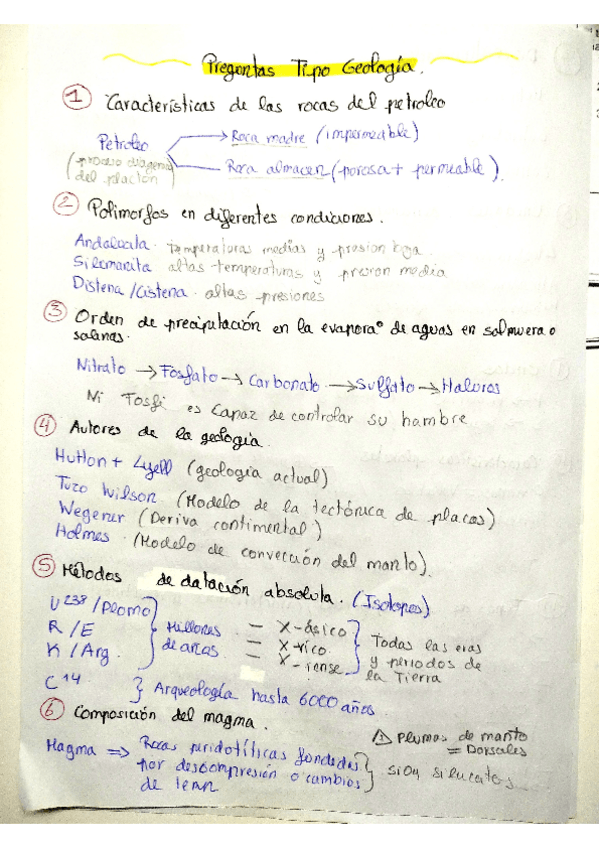 Preguntas Tipo Geología.
① Características de las rocas del petroleo
Petroleo → Roca madre (impermeable)
(proceso diagene
del plactón) → Roca almacen (porosa + permeable).
② Polimorfos en diferentes condiciones.
Andalucita · temperaturas medias y presion baja.
Silimanita altas temperaturas y presion media
Distena / Cistena · altas presiones
③ Orden de precipitación en la evapora° de aguas en salmuera o
salinas.
Nitrato → Fosfato → Carbonato → Sulfato → Haluros
Ni Fosfi es capaz de controlar su hambre
④ Autores de la geología.
Hutton + Lyell (geología actual)
Tuzo Wilson (Modelo de la tectónica de placas)
Wegener (Deriva continental)
Holmes · (Modelo de convección del manto).
⑤ Métodos de datación absoluta. (Isotopos)
U 238 / Plomo
R / E
K / Arg.
Millones
de años
— X-ásico
— X-rico
— X-iense
Todas las eras
y periodos de
la Tierra
C 14 } Arqueología hasta 6000 años
⑥ Composición del magma.
⚠ Plumas de manto
= Dorsales
Magma ⇒ Rocas peridotíticas fundidas
por descompresión o cambios
de
} SiO4 silicatos